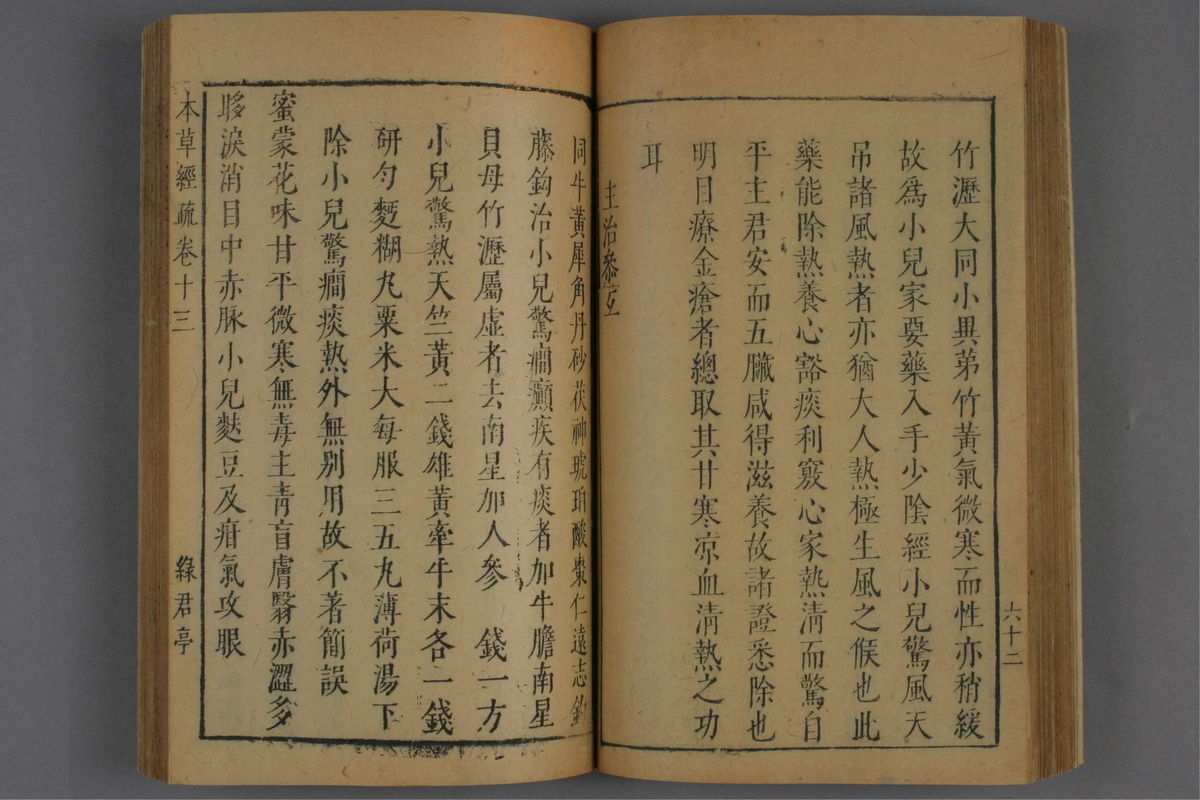 六十二
竹瀝大同小異苐竹黃氣微寒而性亦稍緩
故爲小兒家要藥入手少陰經小兒驚風天
吊諸風熱者亦猶大人熱極生風之候也此
藥能除熱養心豁痰利竅心家熱淸而驚自
平主君安而五臟咸得滋養故諸證悉除也
明目療金瘡者總取其甘寒凉血淸熱之功
耳
主治叅互
同牛黃犀角丹砂茯神琥珀酸棗仁遠志鈎
藤鈎治小兒驚癎癲疾有痰者加牛膽南星
貝母竹瀝屬虛者去南星加人參 錢一方
小兒驚熱天竺黃二錢雄黃牽牛末各一錢
研勻麪糊丸粟米大每服三五丸薄荷湯下
除小兒驚癎痰熱外無別用故不著簡誤
蜜蒙花味甘平微寒無毒主靑盲膚翳赤澀多
眵淚消目中赤脉小兒麩豆及疳氣攻眼
本草經疏卷十三
綠君亭